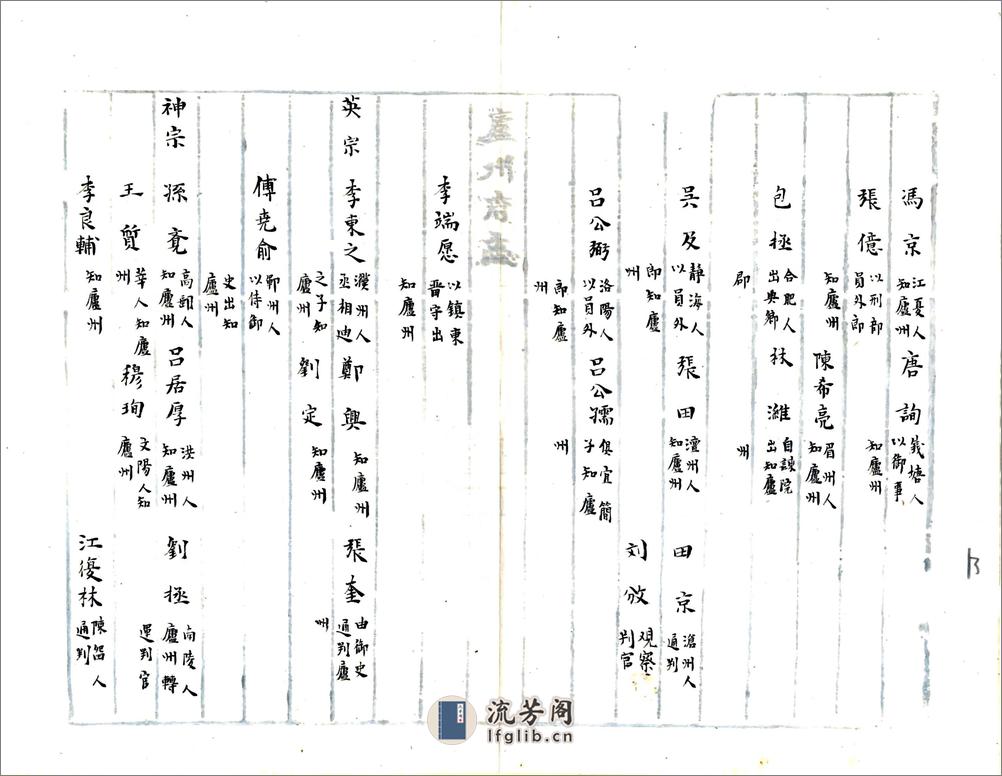 馮京 江夏人知廬州 唐詢 錢塘人以御事知廬州
張億 以刑部員外郎知廬州 陳希亮 眉州人知廬州
包拯 合肥人出典鄉郡 林濰 自諫院出知廬州
吳及 靜海人以員外郎知廬州 張田 澶州人知廬州 田京 滄州人通判
刘攽 观察判官
呂公弼 洛陽人以員外郎知廬州 呂公孺 俱宜簡子知廬州
廬州府志
李端愿 以鎮東晋守出知廬州
英宗 李東之 濮州人丞相迪之子知廬州 鄭興 知廬州 張奎 由御史通判廬州
劉定 知廬州
傅堯俞 鄆州人以侍御史出知廬州
神宗 孫覺 高郵人知廬州 呂居厚 洪州人知廬州 劉拯 南陵人廬州轉運判官
王質 莘人知廬州 穆珣 文陽人知廬州
李良輔 知廬州 江復林 陳留人通判
13
流芳阁
lfglib.cn